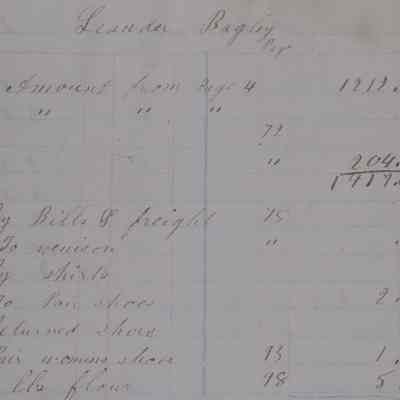 Leander Bagley
Amount from Page 4 1212.
" " "
72
" 204.
1417.
By Bills & freight 75
To venison "
By shirts
To Pair shoes 2
returned shoes
Pair womens shoes 93 1.
lbs flour 98 5